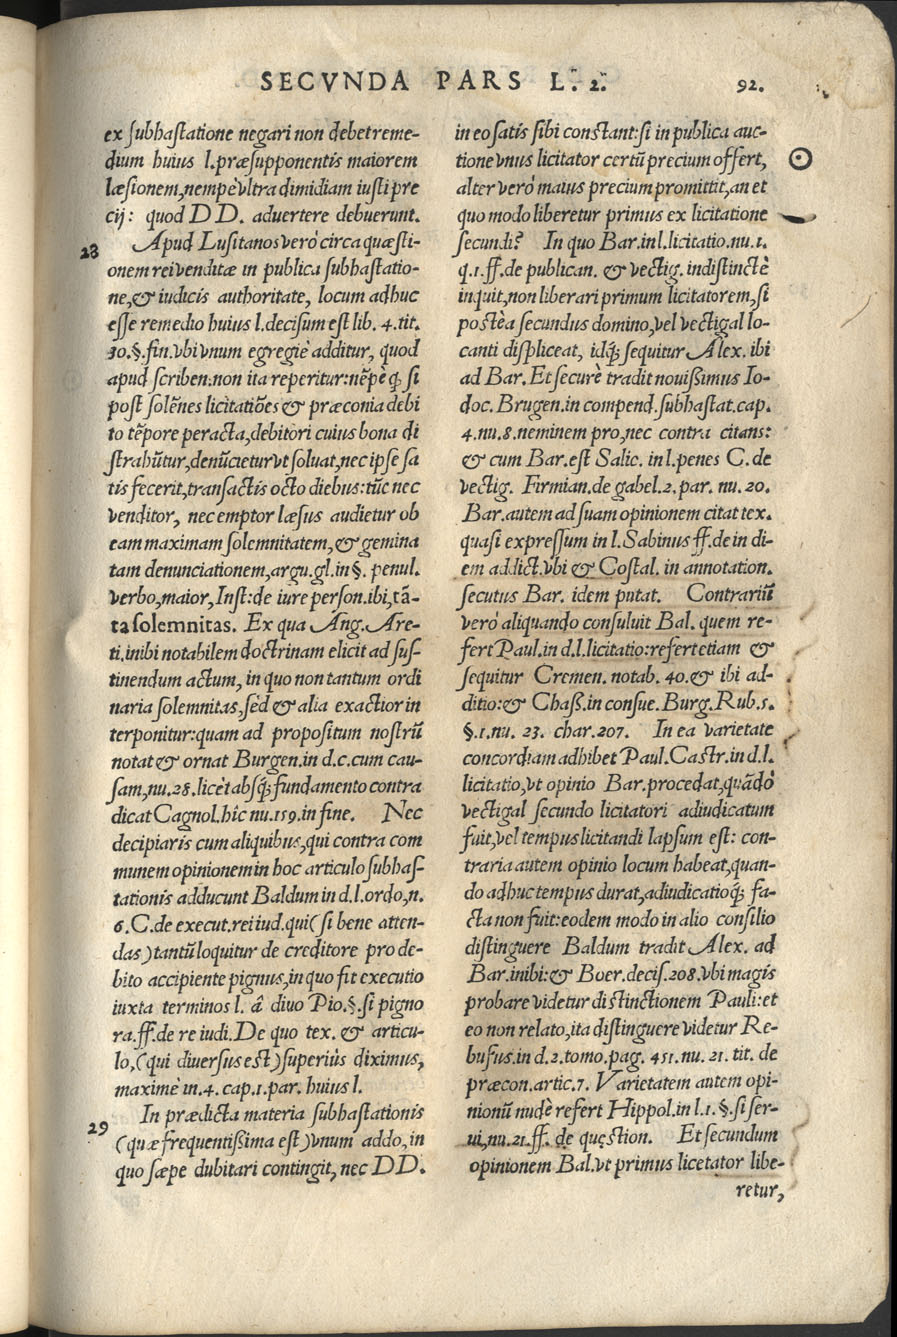 SECVNDA PARS L.. 2.. 92.
ex subhastatione negari non debet reme-
dium huius l. præsupponentis maiorem
læsionem, nempè vltra dimidiam iusti pre
cij: quod DD. aduertere debuerunt.
28 Apud Lusitanos verò circa quæsti-
onem rei venditæ in publica subhastatio-
ne, & iudicis authoritate, locum adhuc
esse remedio huius l. decisum est lib. 4. tit.
30. §. fin. vbi vnum egregiè additur, quod
apud scriben: non ita reperitur: nẽpè ꝙ si
post solẽnes licitatiões & præconia debi
to tẽpore peracta, debitori cuius bona di
strahũtur, denũcietur vt soluat, nec ipse sa
tis fecerit, transactis octo diebus: tũc nec
venditor, nec emptor læsus audietur ob
eam maximam solemnitatem, & gemina
tam denunciationem, argu. gl. in §. penul.
verbo, maior, Inst: de iure person. ibi, tã-
ta solemnitas. Ex qua Ang. Are-
ti. inibi notabilem doctrinam elicit ad sus-
tinendum actum, in quo non tantum ordi
naria solemnitas, sèd & alia exactior in
terponitur: quam ad propositum nostrũ
notat & ornat Burgen. in d. c. cum cau-
sam, nu. 28. licèt absq́; fundamento contra
dicat Cagnol. hîc nu. 159. in fine. Nec
decipiaris cum aliquibus, qui contra com
munem opinionem in hoc articulo subhas-
tationis adducunt Baldum in d. l. ordo, n.
6. C. de execut. rei iud. qui (si bene atten-
das) tantũ loquitur de creditore pro de-
bito accipiente pignus, in quo fit executio
iuxta terminos l. â diuo Pio. §. si pigno
ra. ff. de re iudi. De quo tex. & articu-
lo, (qui diuersus est) superiùs diximus,
maximè in. 4. cap. 1. par. huius l.
29 In prædicta materia subhastationis
(quæ frequentißima est) vnum addo, in
quo sæpe dubitari contingit, nec DD.
in eo satis sibi constant: si in publica auc-
tione vnus licitator certũ precium offert,
alter verò maius precium promittit, an et
quo modo liberetur primus ex licitatione
secundi? In quo Bar. in l. licitatio. nu. 1.
q. 1. ff. de publican. & vectig. indistinctè
inquit, non liberari primum licitatorem, si
postèa secundus domino, vel vectigal lo-
canti displiceat, idq́; sequitur Alex. ibi
ad Bar. Et securè tradit nouißimus Io-
doc. Brugen. in compend. subhastat. cap.
4. nu. 8. neminem pro, nec contra citans:
& cum Bar. est Salic. in l. penes C. de
vectig. Firmian. de gabel. 2. par. nu. 20.
Bar. autem ad suam opinionem citat tex.
quasi expressum in l. Sabinus ff. de in di-
em addict. vbi & Costal. in annotation.
secutus Bar. idem putat. Contrariũ
verò aliquando consuluit Bal. quem re-
fert Paul. in d. l. licitatio: refert etiam &
sequitur Cremen. notab. 40. & ibi ad-
ditio: & Chaß. in consue. Burg. Rub. 5.
§. 1. nu. 23. char. 207. In ea varietate
concordiam adhibet Paul. Castr. in d. l.
licitatio, vt opinio Bar. procedat, quãdò
vectigal secundo licitatori adiudicatum
fuit, vel tempus licitandi lapsum est: con-
traria autem opinio locum habeat, quan-
do adhuc tempus durat, adiudicatioq́; fa-
cta non fuit: eodem modo in alio consilio
distinguere Baldum tradit Alex. ad
Bar. inibi: & Boer. decis. 208. vbi magis
probare videtur distinctionem Pauli: et
eo non relato, ita distinguere videtur Re-
bufus. in d. 2. tomo. pag. 451. nu. 21. tit. de
præcon. artic. 7. Varietatem autem opi-
nionũ nudè refert Hippol. in l. 1. §. si ser-
ui, nu. 21. ff. de quęstion. Et secundum
opinionem Bal. vt primus licetator libe-
retur,